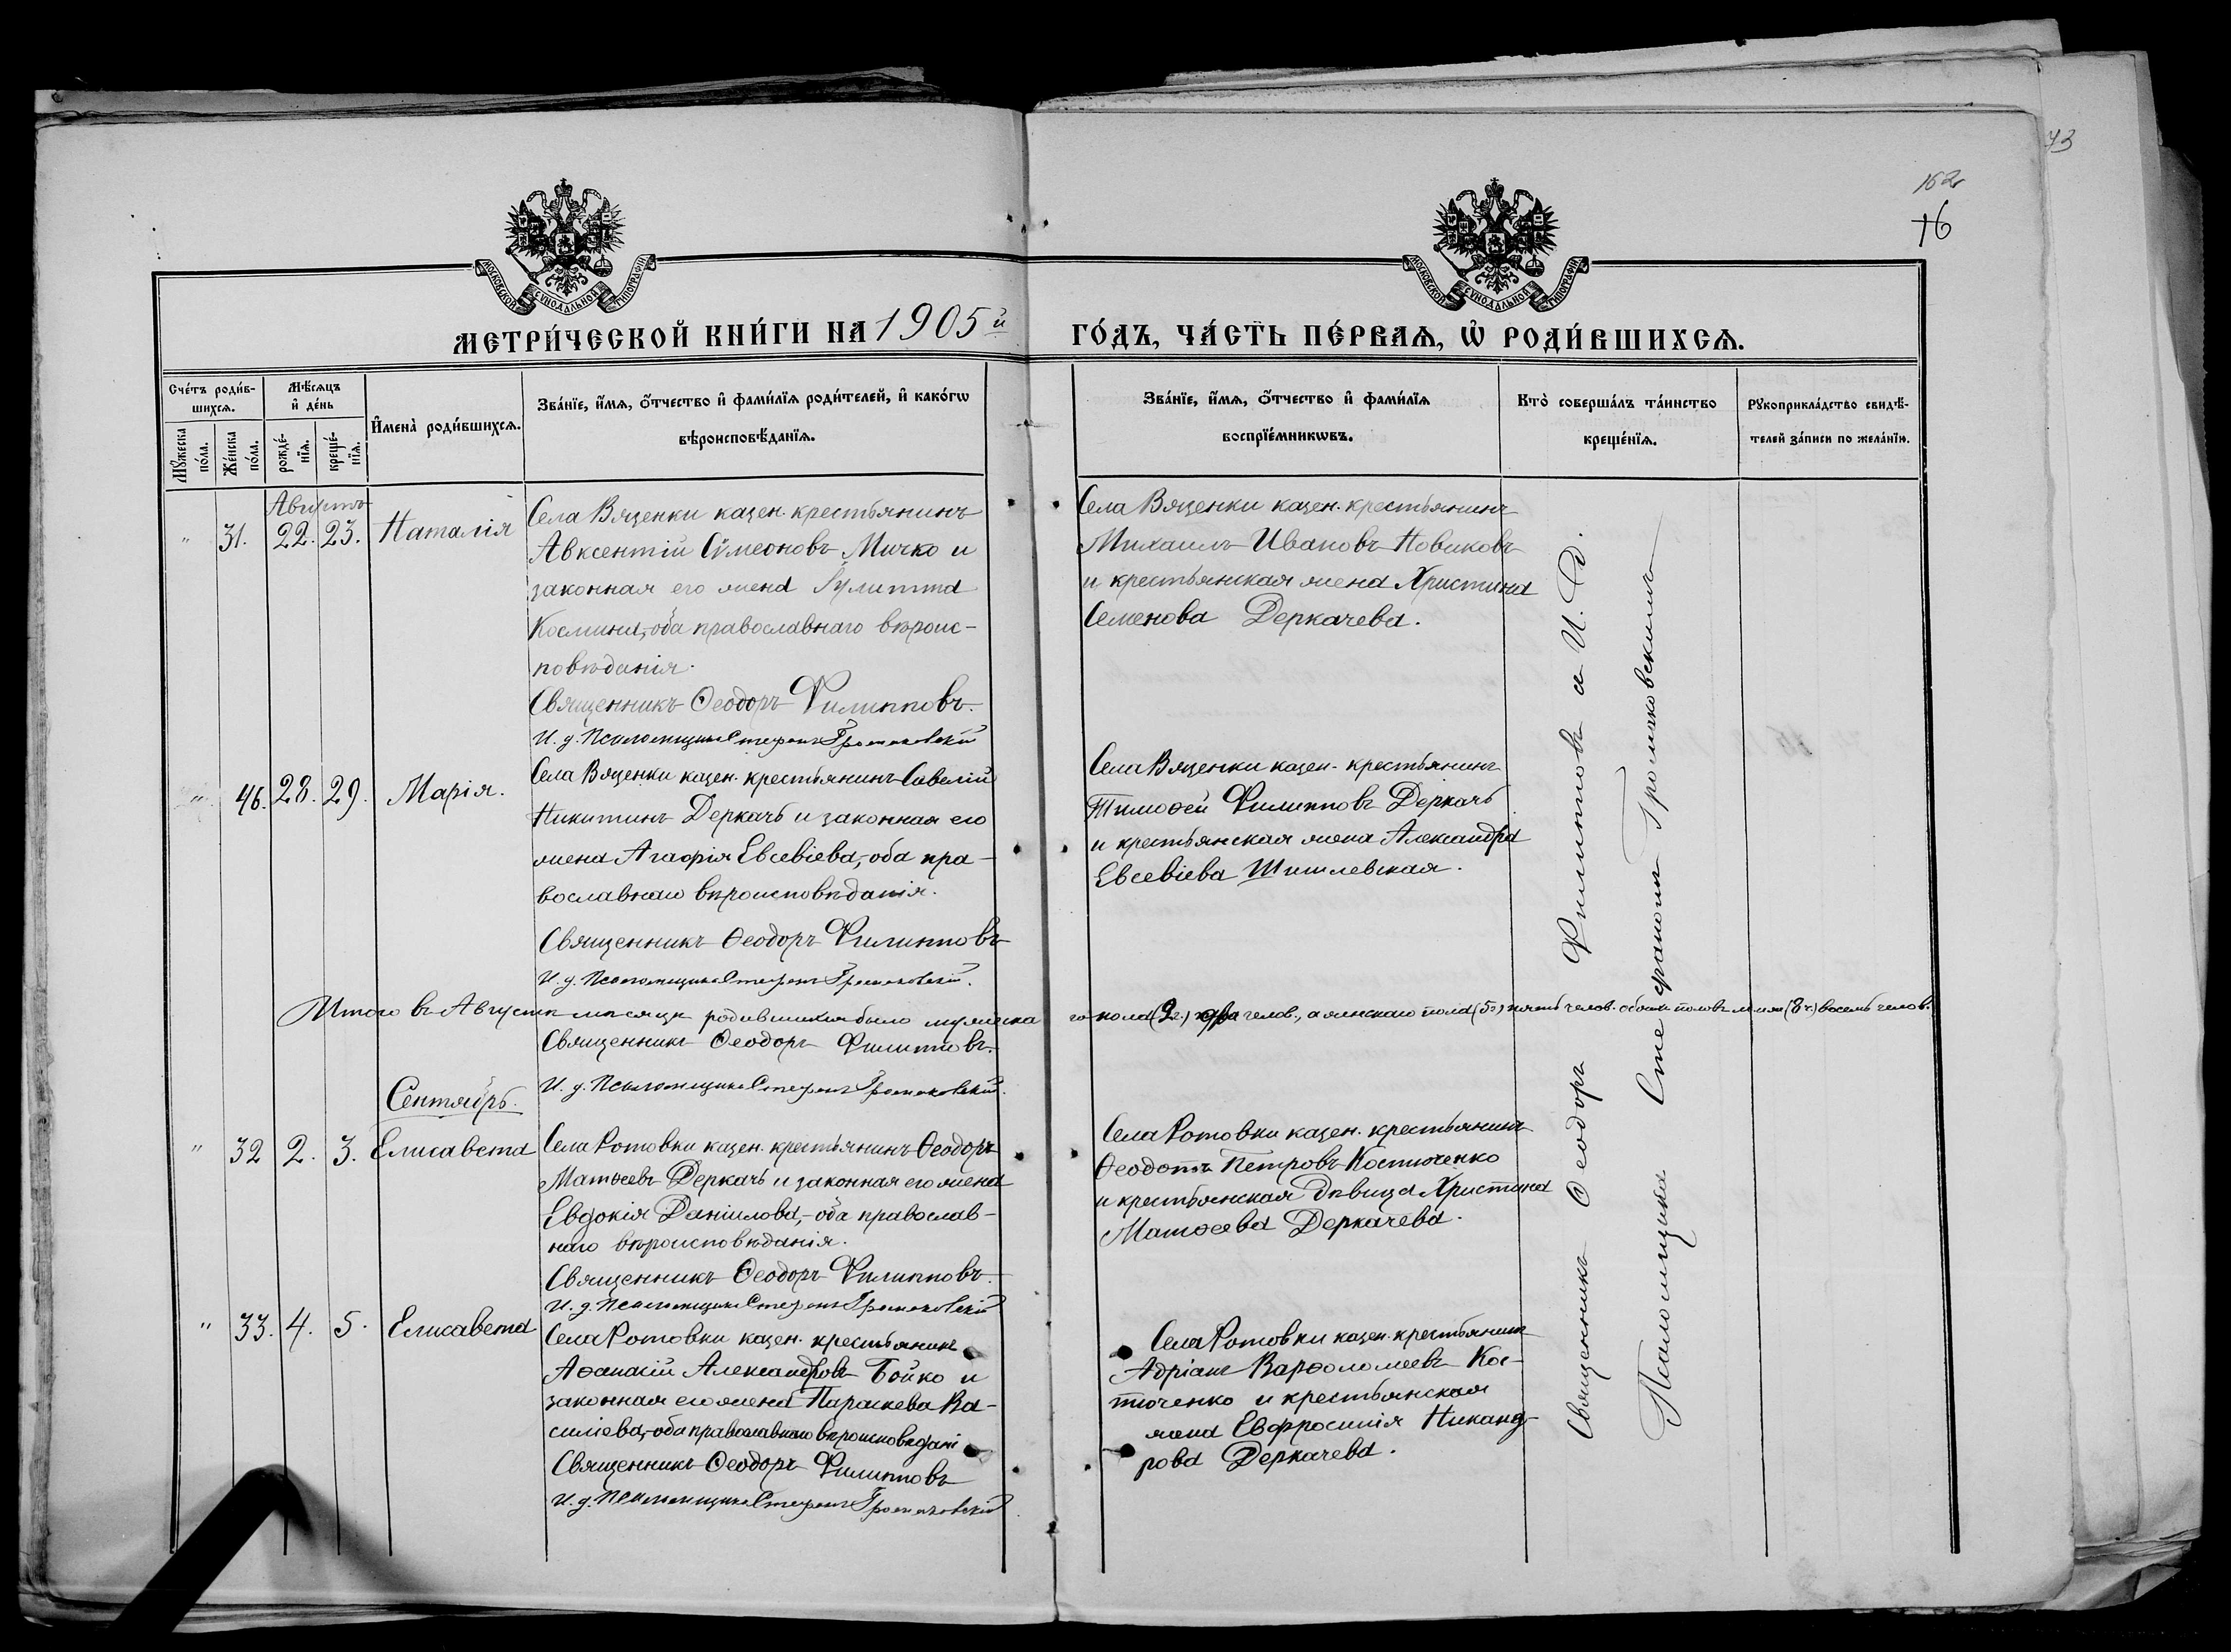 43
162
16
МОСКОВСКОЙ СѴНОДАЛЬНОЙ ТИПОГРАФІИ
МОСКОВСКОЙ СѴНОДАЛЬНОЙ ТИПОГРАФІИ
МЕТРИ́ЧЕСКОЙ КНИ́ГИ НА 1905й
ГО́ДЪ, ЧА́СТЬ ПЕ́РВАѦ, Ѡ РОДИ́ВШИХСѦ.
Сче́тъ роди́в-
шихсѧ.
Мꙋ́жеска по́ла.
Же́нска по́ла.
Мѣ́сѧцъ
и де́нь
рожде́-
нїѧ.
креще́-
нїѧ.
Имена̀ роди́вшихсѧ.
Зва́нїе, и́мѧ, о́тчество и фами́лїѧ роди́телей, и како́гѡ
вѣроисповѣ́данїѧ.
Зва́нїе, и́мѧ, о́тчество и фами́лїѧ
воспрїе́мникѡвъ.
Кто̀ соверша́лъ та́инство
креще́нїѧ.
Рꙋкоприкла́дство свидѣ́-
телей за́писи по жела́нїю.
Августъ
" 31. 22. 23. Наталія
Села Вяценки казен. крестьянинъ
Авксентій Сѵмеоновъ Мичко и
законная его жена Іулитта
Космина, оба православнаго вѣроис-
повѣданія.
Священникъ Ѳеодоръ Филипповъ.
И. д. Псаломщика Стефанъ Громаковскій
Села Вяценки казен. крестьянинъ
Михаилъ Ивановъ Новиковъ
и крестьянская жена Христина
Семенова Деркачева.
" 46. 28. 29. Марія.
Села Вяценки казен. крестьянинъ Савелій
Никитинъ Деркачъ и законная его
жена Агафія Евсевіева, оба пра-
вославнаго вѣроисповѣданія.
Священникъ Ѳеодоръ Филипповъ
И. д. Псаломщика Стефанъ Громаковскій.
Села Вяценки казен. крестьянинъ
Тимоѳей Филипповъ Деркачъ
и крестьянская жена Александра
Евсевіева Шишлевская.
Итого въ Августѣ мѣсяцѣ родившихся было мужеска
го пола (2.) два челов., а женскаго пола (5.) пять челов. обоихъ половъ (8 ч.) восемь челов.
Священникъ Ѳеодоръ Филипповъ.
И. д. Псаломщика Стефанъ Громаковскій.
Сентябрь.
" 32 2. 3. Елисавета
Села Ротовки казен. крестьянинъ Ѳеодоръ
Матѳеевъ Деркачъ и законная его жена
Евдокія Даніилова, - оба православ-
наго вѣроисповѣданія.
Священникъ Ѳеодоръ Филипповъ.
И. д. Псаломщика Стефанъ Громаковскій
Села Ротовки казен. крестьянинъ
Ѳеодотъ Петровъ Костюченко
и крестьянская дѣвица Христина
Матѳеева Деркачева.
" 33. 4. 5. Елисавета
Села Ротовки казен. крестьянинъ
Аѳанасій Александровъ Бойко и
законная его жена Параскева Ва-
силіева, оба православнаго вѣроисповѣдані
Священникъ Ѳеодоръ Филипповъ
И. д. Псаломщика Стефанъ Громаковскій
Села Ротовки казен. крестьянинъ
Адріанъ Варѳоломеевъ Кос-
тюченко и крестьянская
жена Евфросинія Никанд-
рова Деркачева.
Священникъ Ѳеодоръ Филипповъ и И. Д.
Псаломщика Стефанъ Громаковскій